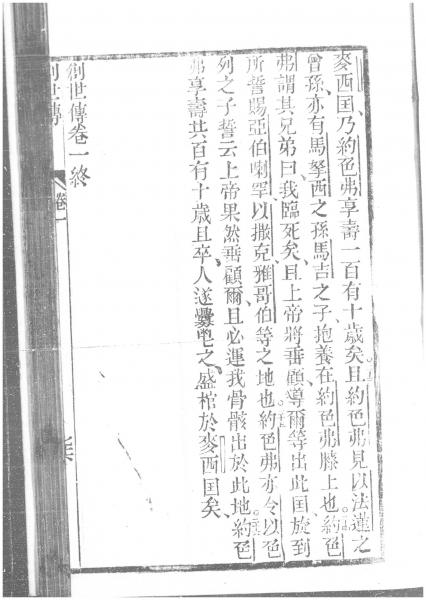 麥西囯、乃約色弗享壽一百有十歳矣。且約色弗見以法蓮之
曾孫、亦有馬拏西之孫馬吉之子、抱養在約色弗膝上也。約色
弗謂其兄弟曰、我臨死矣、且上帝將垂顧、導爾等出此囯、旋到
所誓賜亞伯喇罕、以撒克、雅哥伯等之地也。約色弗亦令以色
列之子誓云、上帝果然垂顧爾、且必運我骨骸出於此地。約色
弗享壽共百有十歳且卒、人遂釁𡨴之、盛棺於麥西囯矣、
創世傳卷一終
創世傳 卷一